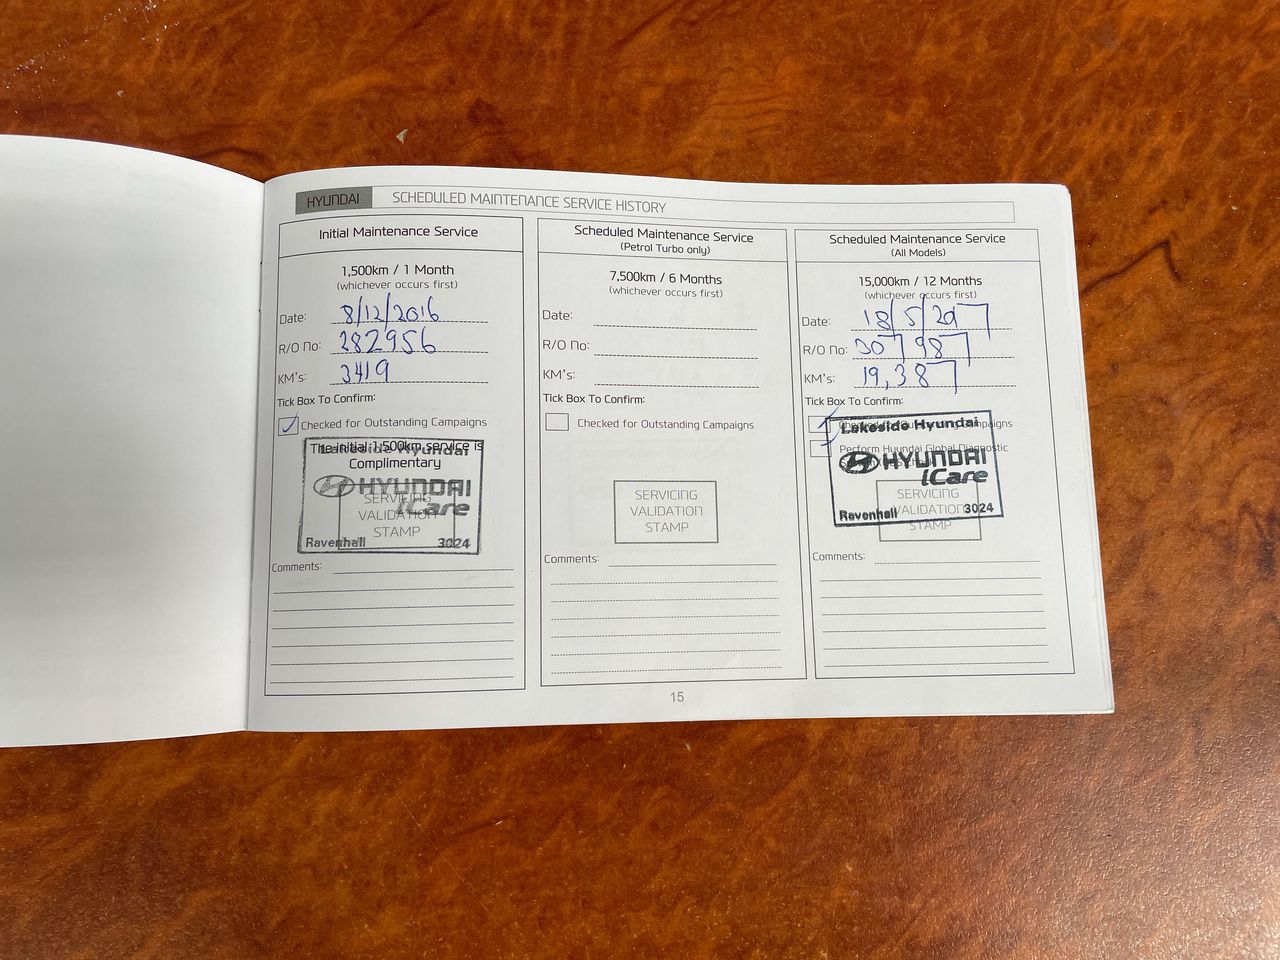 HYUNDAI SCHEDULED MAINTENANCE SERVICE HISTORY
Initial Maintenance Service
1,500km / 1 Month
(whichever occurs first)
Date: 8/12/2016
R/O No: 282956
KM's: 3419
Tick Box To Confirm:
Checked for Outstanding Campaigns
The initial 1,500km service is
Complimentary
Lakeside Hyundai
HYUNDAI
iCare
Ravenhall 3024
SERVICING
VALIDATION
STAMP
Comments:
Scheduled Maintenance Service
(Petrol Turbo only)
7,500km / 6 Months
(whichever occurs first)
Date:
R/O No:
KM's:
Tick Box To Confirm:
Checked for Outstanding Campaigns
SERVICING
VALIDATION
STAMP
Comments:
Scheduled Maintenance Service
(All Models)
15,000km / 12 Months
(whichever occurs first)
Date: 18/5/2017
R/O No: 307987
KM's: 19,387
Tick Box To Confirm:
Checked for Outstanding Campaigns
Perform Hyundai Global Diagnostic
Lakeside Hyundai
HYUNDAI
iCare
Ravenhall 3024
SERVICING
VALIDATION
STAMP
Comments:
15